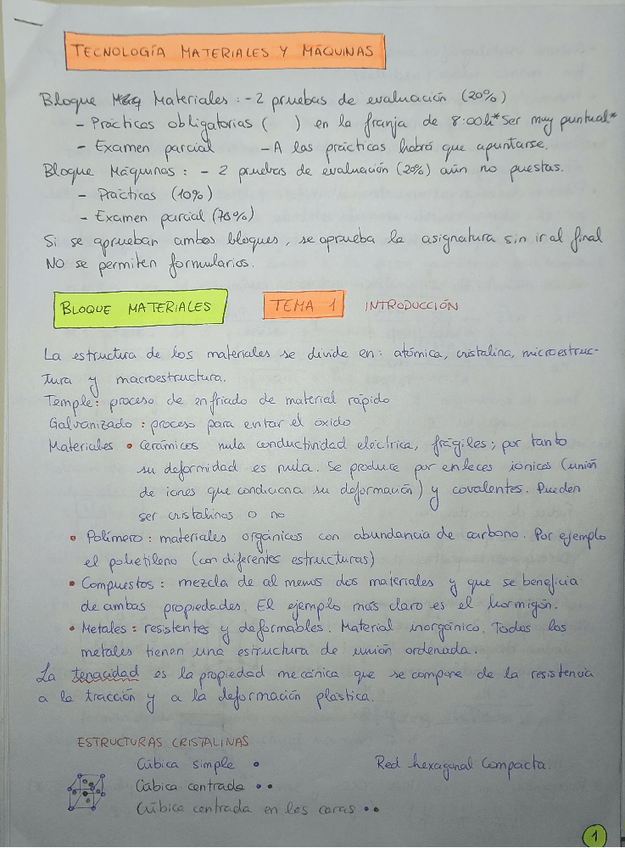 TECNOLOGÍA MATERIALES Y MÁQUINAS
Bloque Materiales: - 2 pruebas de evaluación (20%)
- Prácticas obligatorias ( ) en la franja de 8:00h *Ser muy puntual*
- Examen parcial - A las prácticas habrá que apuntarse.
Bloque Máquinas: - 2 pruebas de evaluación (20%) aún no puestas.
- Prácticas (10%)
- Examen parcial (70%)
Si se aprueban ambos bloques, se aprueba la asignatura sin ir al final
NO se permiten formularios.
BLOQUE MATERIALES TEMA 1 INTRODUCCIÓN
La estructura de los materiales se divide en: atómica, cristalina, microestruc-
tura y macroestructura.
Temple: proceso de enfriado de material rápido
Galvanizado: proceso para evitar el óxido
Materiales • Cerámicos nula conductividad eléctrica, frágiles; por tanto
su deformidad es nula. Se produce por enlaces iónicos (unión
de iones que condiciona su deformación) y covalentes. Pueden
ser cristalinos o no
• Polímero: materiales orgánicos con abundancia de carbono. Por ejemplo
el polietileno (con diferentes estructuras)
• Compuestos: mezcla de al menos dos materiales y que se beneficia
de ambas propiedades. El ejemplo más claro es el hormigón.
• Metales: resistentes y deformables. Material inorgánico. Todos los
metales tienen una estructura de unión ordenada.
La tenacidad es la propiedad mecánica que se compone de la resistencia
a la tracción y a la deformación plástica.
ESTRUCTURAS CRISTALINAS
Cúbica simple • Red hexagonal Compacta.
Cúbica centrada ••
Cúbica centrada en las caras ••
1